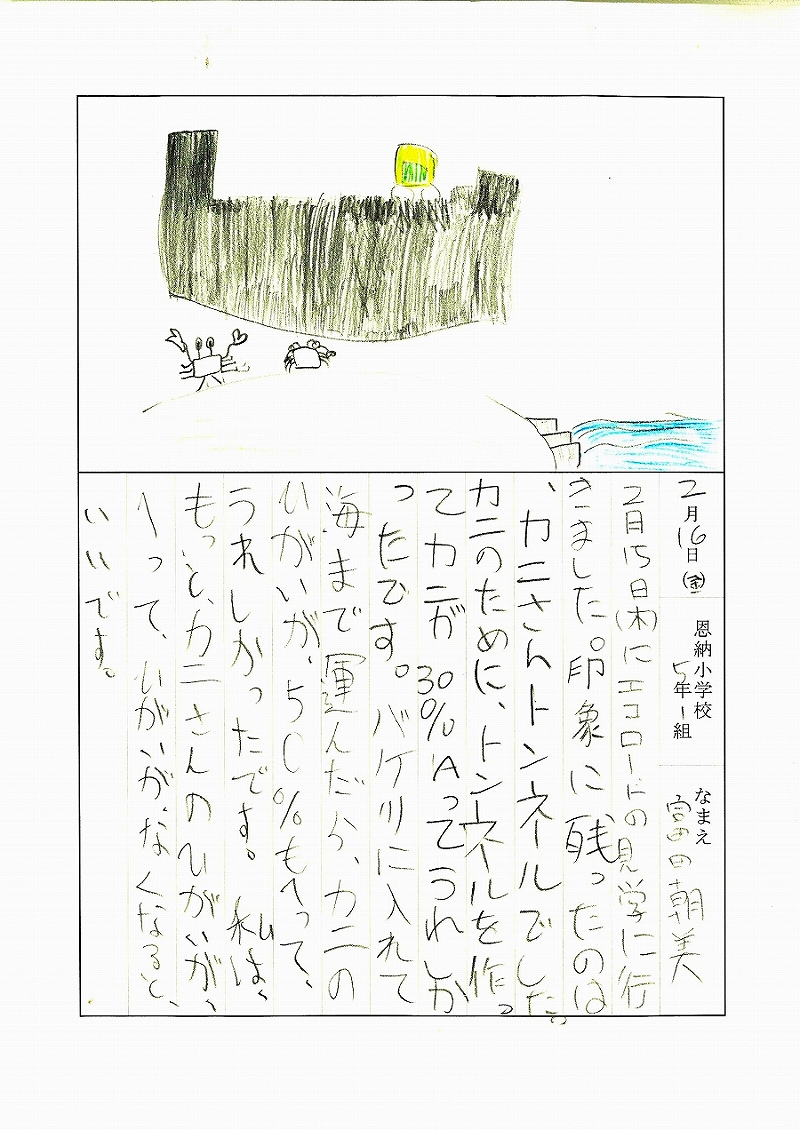 2月16日(金)
恩納小学校
5年1組
なまえ
朝美
2月15日(木)にエコロードの見学に行
きました。印象に残ったのは
、カニさんトンネルでした。
カニのために、トンネルを作っ
てカニが30%うれしか
ったです。バケツに入れて
海まで運んだら、カニの
ひがいが、50%もへって、
うれしかったです。私は、
もっと、カニさんのひがいが、
へって、ひがいが、なくなると、
いいです。